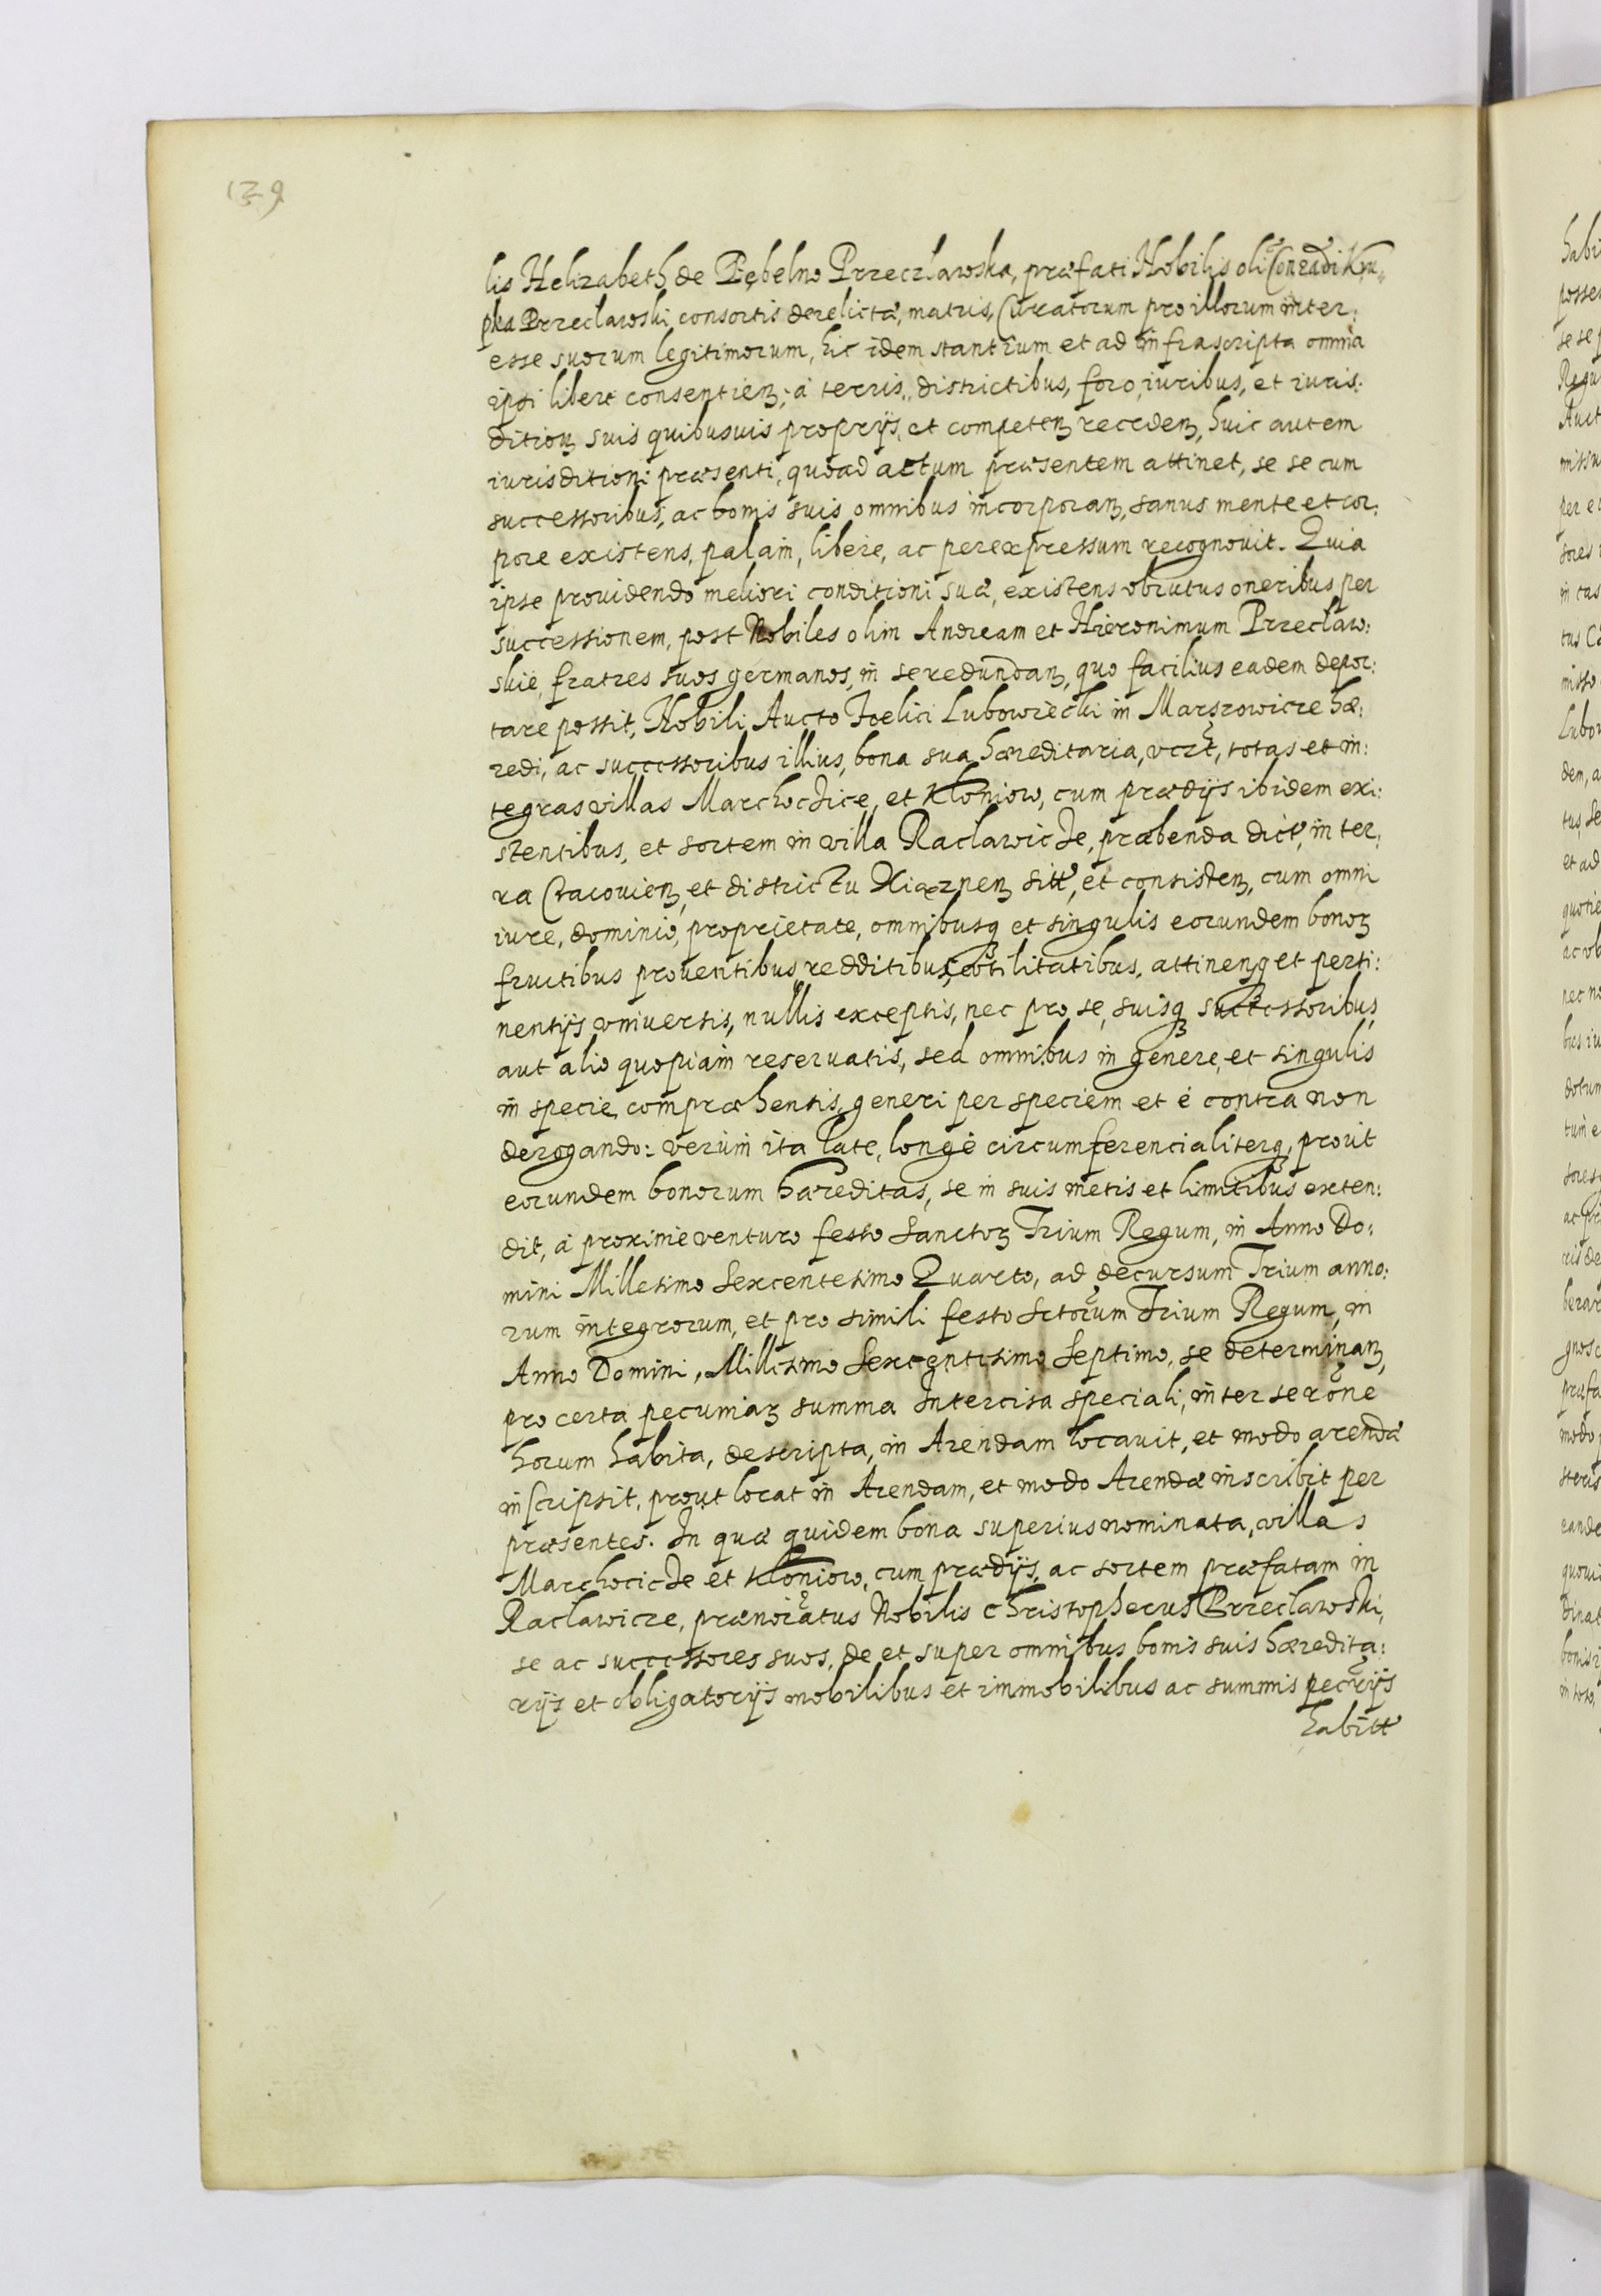 129
lis Helizabeth de Pębelno Przeczlawska, præfati Nobilis oli Conradi Kru„
pka Przeclawski consortis derelictæ, matris, Curatorum pro illorum inter:
esse suorum legitimorum, hic idem stantium et ad infrascripta omnia
ipsi libere consentienꝫ, à terris, districtibus, foro, iuribus, et iuris:
ditionꝫ suis quibusuis proprijs, et competenꝫ recedenꝫ, huic autem
iurisditioni præsenti, quoad actum præsentem attinet, se se cum
successoribus, ac bonis suis omnibus incorporanꝫ, sanus mente et cor:
pore existens, palam, libere, ac per expressum recognouit. Quia
ipse prouidendo meliori conditioni suæ, existens obrutus oneribus per
successionem, post Nobiles olim Andream et Hieronimum Przeclaw:
skie, fratres suos germanos, in se redundanꝫ, quo facilius eadem depor:
tare possit, Nobili Aucto Foelici Lubowiecki in Marszowicze hæ:
redi, ac successoribus illius, bona sua hæreditaria, vczt, totas et in:
tegras villas Marchoczice, et Kłoniow, cum prædijs ibidem exi:
stentibus, et sortem in villa Raclawicze, præbenda dict, in ter:
ra Cracouienꝫ, et districtu Xiąznenꝫ sitt, et consistenꝫ, cum omni
iure, dominio, proprietate, omnibusqꝫ et singulis eorundem bonoꝝ
fructibus prouentibus redditibus, vtilitatibus, attinenꝫ et perti:
nentijs vniuersis, nullis exceptis, nec pro se, suisqꝫ successoribus,
aut alio quopiam reseruatis, sed omnibus in genere, et singulis
in specie, compræhensis, generi per speciem et è contra non
derogando: verùm ita late, longè circumferencialiterqꝫ, prout
eorundem bonorum hæreditas, se in suis metis et limitibus exten:
dit, à proximè venturo festo Sanctoꝝ Trium Regum, in Anno Do:
mini Millesimo Sexcentesimo Quarto, ad decursum Trium anno:
rum integrorum, et pro simili festo Sctorum Trium Regum, in
Anno Domini, Millesimo Sexcentesimo Septimo, se determinanꝫ,
pro certa pecuniaꝝ summa Intercisa speciali, inter se rõne
horum habita, descripta, in Arendam locauit, et modo arendæ
inscripsit, prout locat in Arendam, et modo Arendæ inscribit per
præsentes. In quæ quidem bona superius nominata, villas
Marchocicze et Kłoniow, cum prædijs, ac sortem præfatam in
Raclawicze, prænoiatus Nobilis Christopherus Przeclawski,
se ac successores suos, de et super omnibus bonis suis hæredita:
rijs et obligatorijs mobilibus et immobilibus ac summis pecrijs
habitt